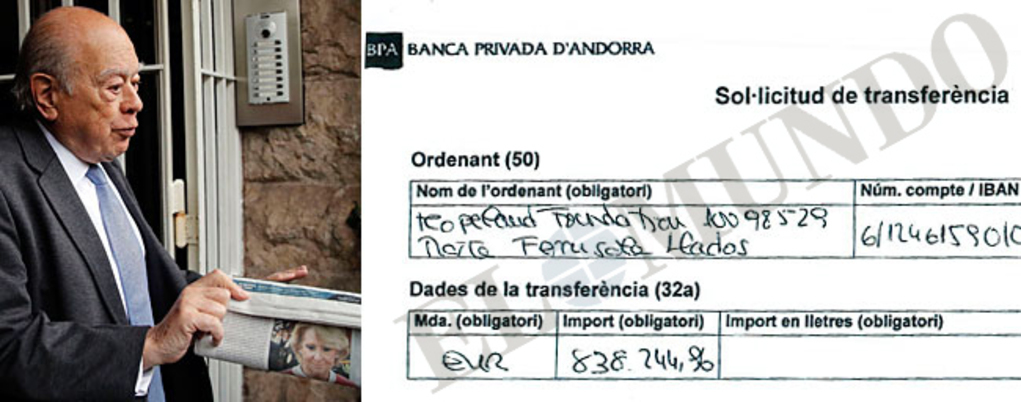 BPA BANCA PRIVADA D'ANDORRA
EL MUNDO
Sol·licitud de transferència
Ordenant (50)
Nom de l'ordenant (obligatori) Núm. compte / IBAN
Kopeland Foundation 100 98529 6/124615901
Marta Ferrusola Lladós
Dades de la transferència (32a)
Mda. (obligatori) Import (obligatori) Import en lletres (obligatori)
EUR 838.244,96